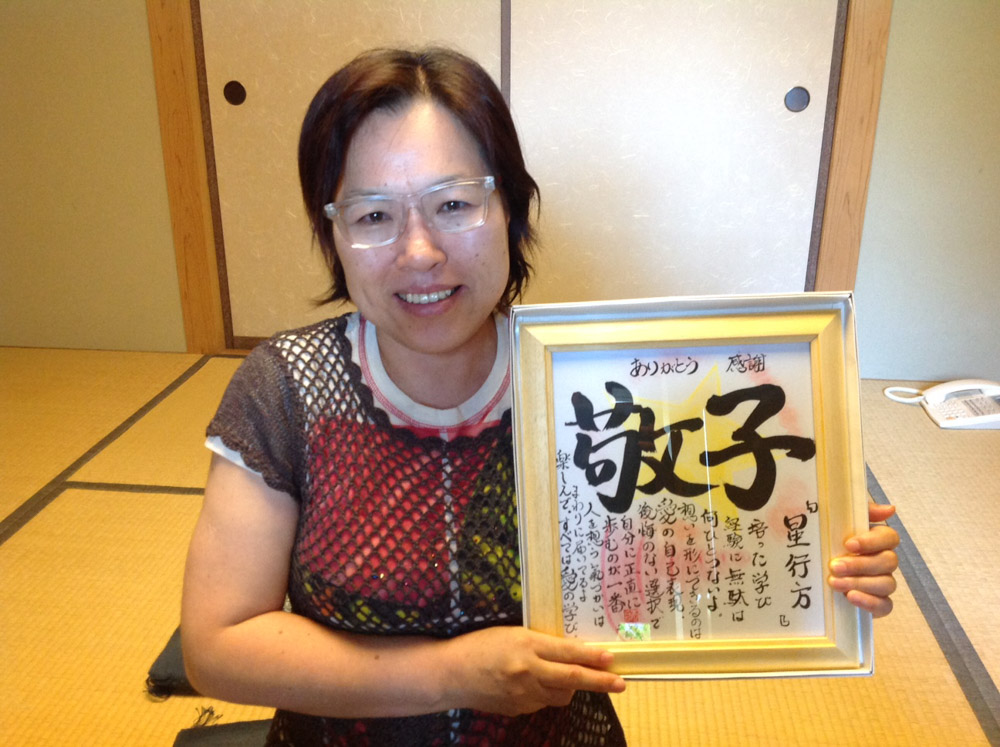 ありがとう 感謝
敬子
『星行方』
培った学び
経験に無駄は
何ひとつないよ。
想いを形につくるのは
愛の自己表現、
後悔のない選択で
自分に正直に
歩むのが一番
人を想う氣づかいは
まわりに届いてるよ
楽しんで、すべては愛の学び。